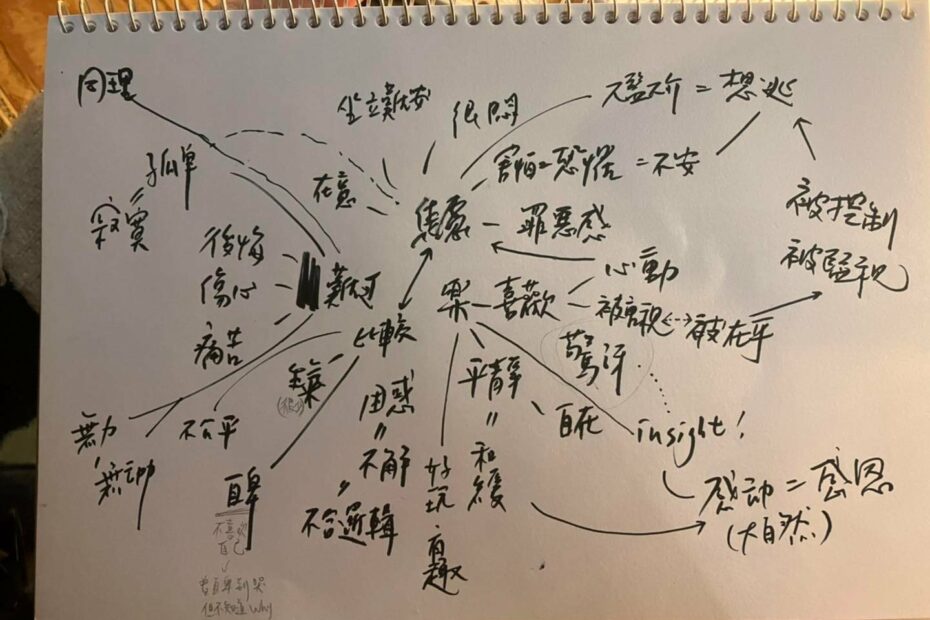 同理
坐立難安
很悶
尷尬 = 想逃
孤單
=
寂寞
在意
害怕 = 恐怕 = 不安
焦慮 - 罪惡感
被控制
被監視
後悔
傷心
痛苦
難過
心動
樂 - 喜歡
被重視 被在乎
比較
驚訝
平靜
=
和緩
自在
insight!
生氣
困惑
=
不解
=
不合邏輯
好玩、有趣
無力
無助
不公平
自卑
不喜歡
自己
會自卑到哭
但不知道 why
感动 = 感恩
(大自然)